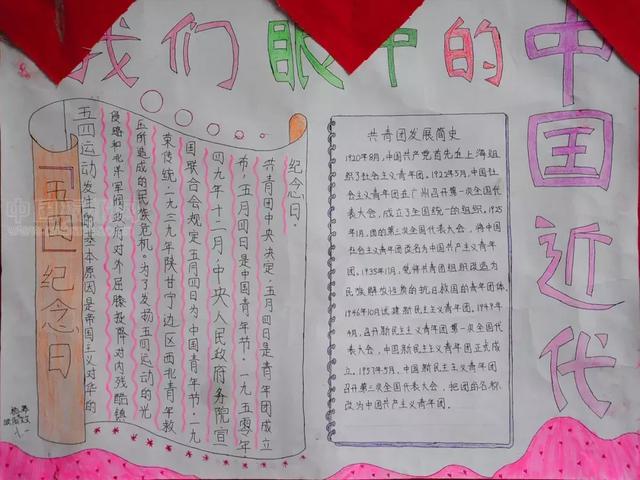 我们眼中的中国近代
『五四』纪念日
五四运动发生的基本原因是帝国主义对华的
侵略和北洋军阀政府对外屈膝投降对内残酷镇
压所造成的民族危机。为了发扬五四运动的光
荣传统,一九三九年陕甘宁边区西北青年救
国联合会规定五月四日为中国青年节。一九
四九年十二月,中央人民政府务院宣
布,五月四日是中国青年节。一九五〇年
共青团中央决定,五月四日是青年团成立
纪念日。
共青团发展简史
1920年8月,中国共产党首先在上海组
织了社会主义青年团。1922年5月,中国社
会主义青年团在广州召开第一次全国代
表大会,成立了全国统一的组织。1925
年1月,团的第三次全国代表大会,将中国
社会主义青年团改名为中国共产主义青年
团。1935年11月,党将共青团组织改造为
民族解放性质的抗日救国的青年团体。
1946年10月试建新民主主义青年团。1949年
4月,召开新民主主义青年团第一次全国代
表大会,中国新民主主义青年团正式成
立。1957年5月,中国新民主主义青年团
召开第三次全国代表大会,把团的名称
改为中国共产主义青年团。